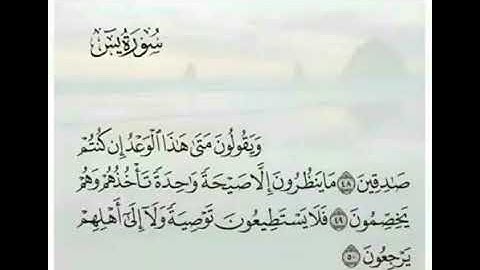 سُورَةُ يسٓ
وَيَقُولُونَ مَتَىٰ هَٰذَا ٱلْوَعْدُ إِن كُنتُمْ
صَٰدِقِينَ ٤٨ مَا يَنظُرُونَ إِلَّا صَيْحَةً وَٰحِدَةً تَأْخُذُهُمْ وَهُمْ
يَخِصِّمُونَ ٤٩ فَلَا يَسْتَطِيعُونَ تَوْصِيَةً وَلَآ إِلَىٰٓ أَهْلِهِمْ
يَرْجِعُونَ ٥٠